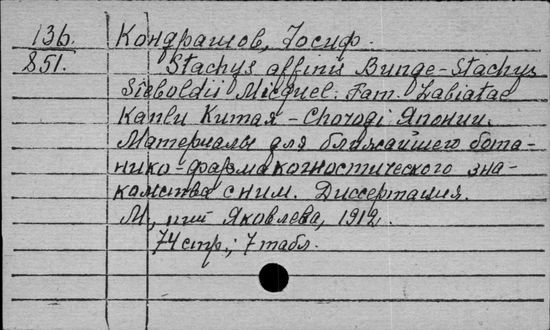 136.
851.
Кондрашов, Іосиф.
Stachys affinis Bunge-Stachys
Sieboldii Micquel. Fam. Labiatae
Kanlu Китая - Chorogi Японии.
Материалы для ближайшего бота-
нико-фармакогностического зна-
комства с ним. Диссертация.
М., тип Яковлева, 1912.
74 стр.; 7 табл.